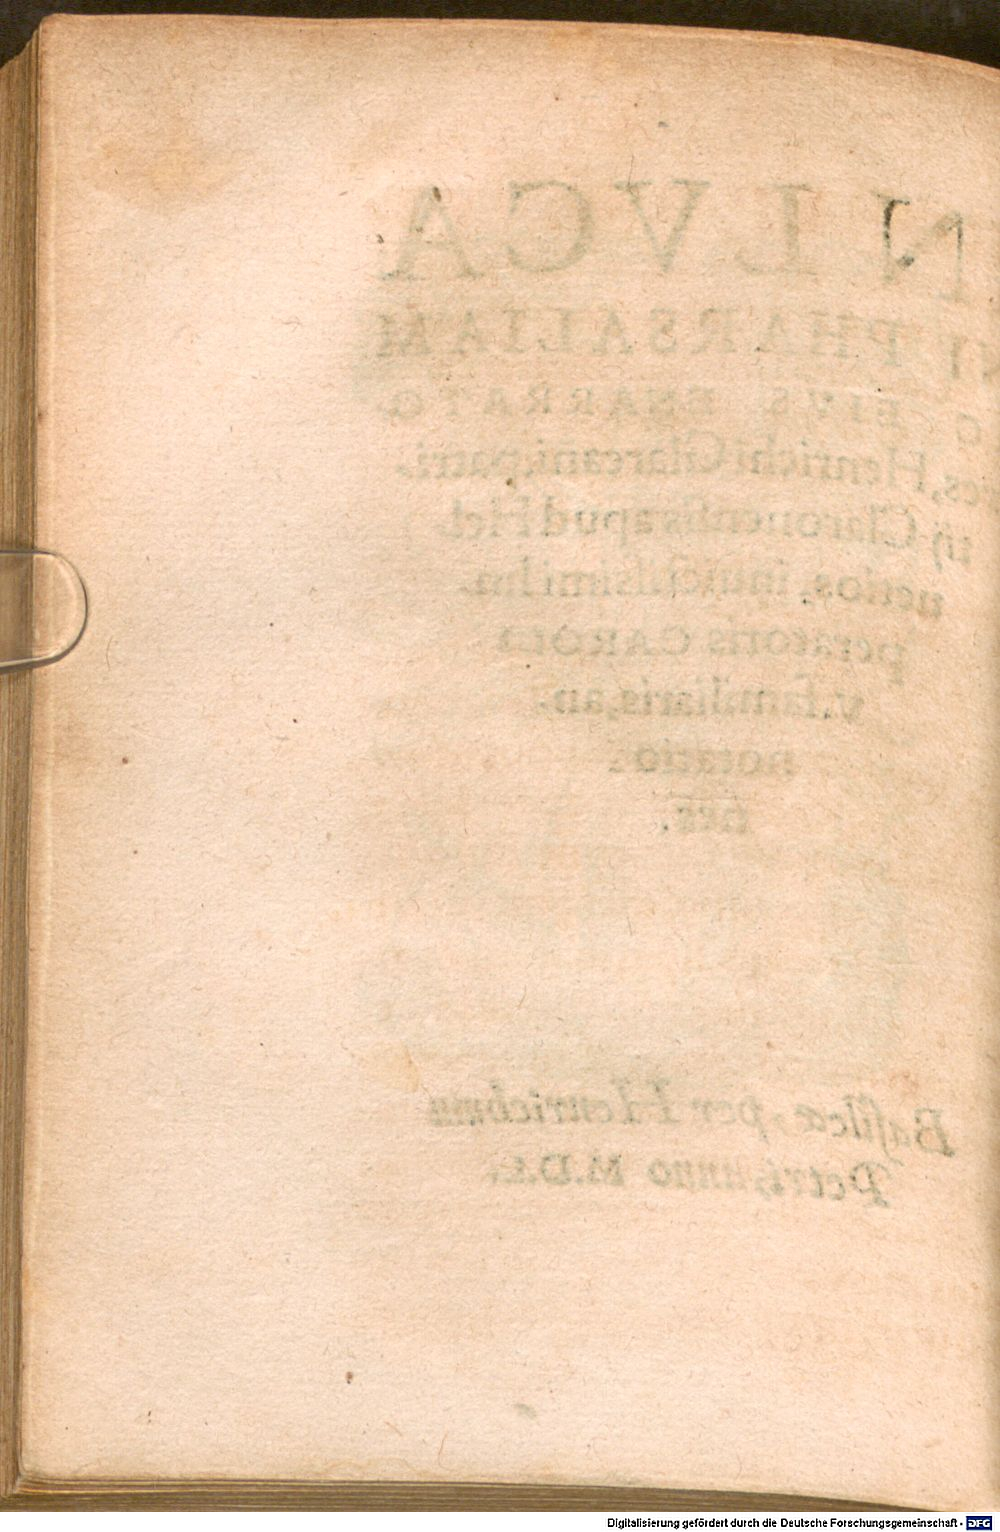 N LVCA
NI PHARSALIAM
EIVS ENARRATO
res, Henrichi Glareani, patri
tij Claronensis apud Hel
uetios, inuictissimi Im
peratoris CAROLI
v. familiaris, an
notatio
nes.
Basileæ, per Henrichum
Petri, anno M.D.L.
Digitalisierung gefördert durch die Deutsche Forschungsgemeinschaft - DFG